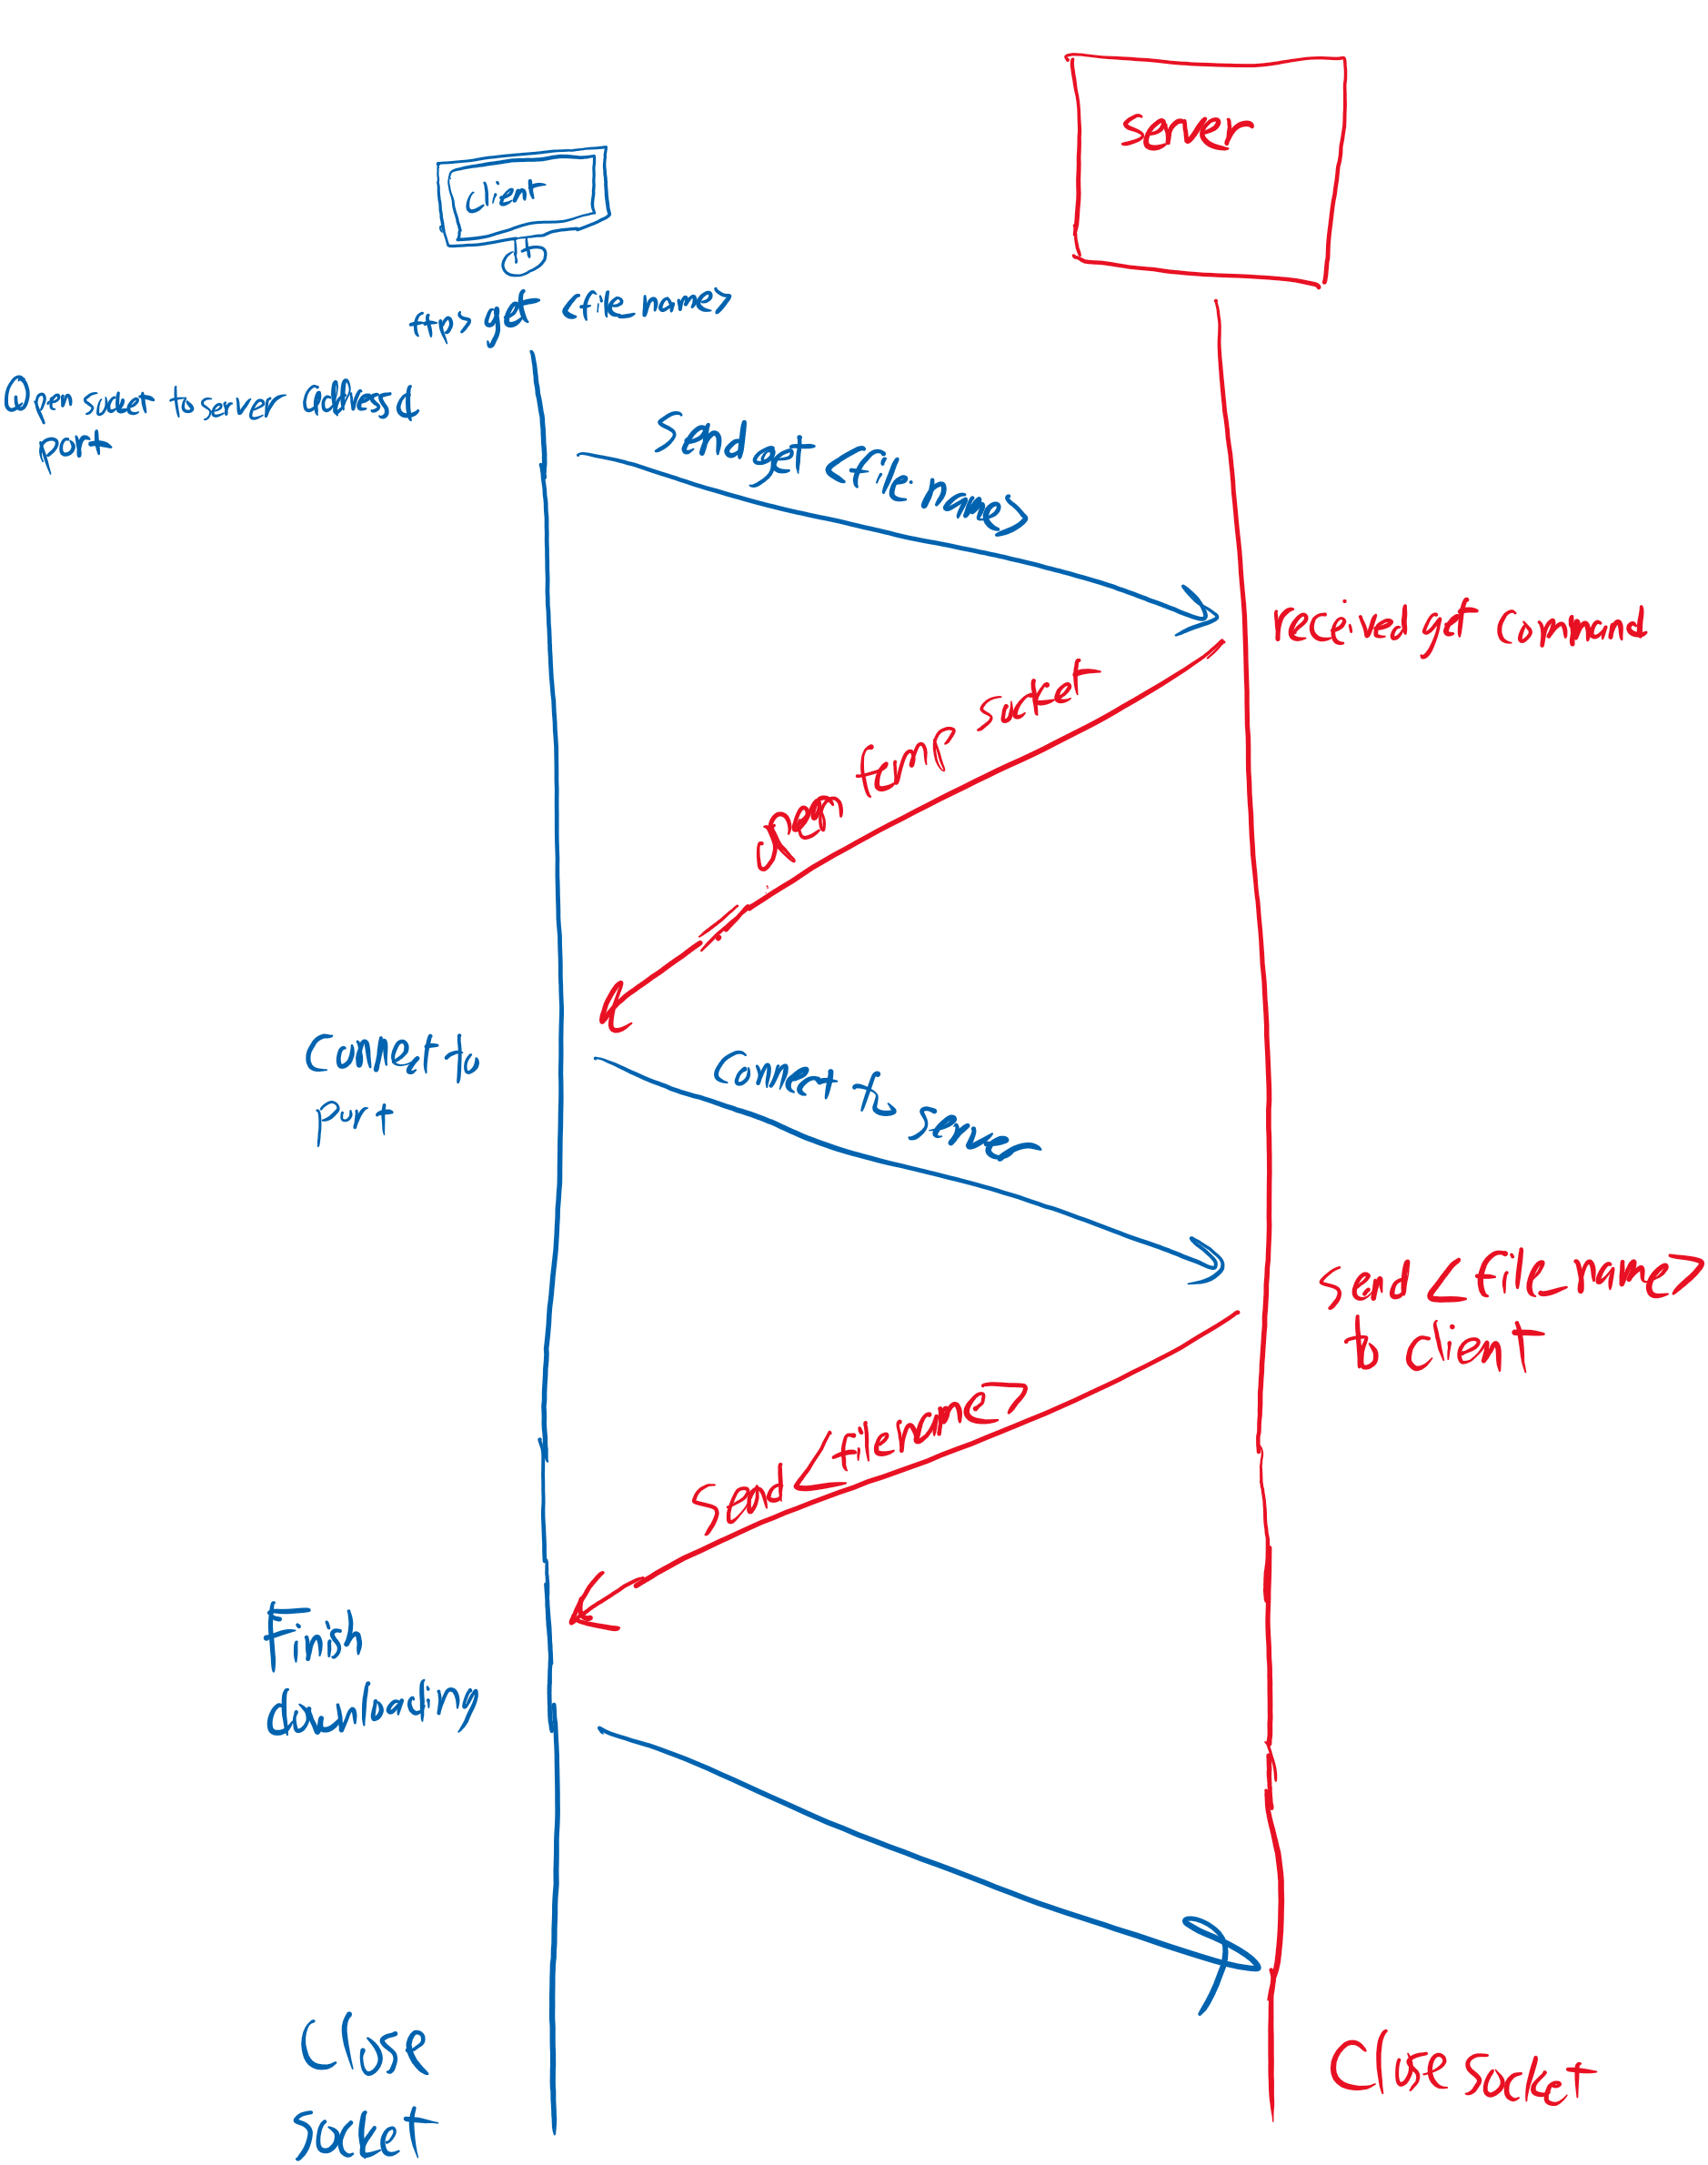 server
client
ftp> get <file_name>
Open socket to server address d
port
Send get <file name>
received get command
open temp socket
Connect to
port
Connect to server
Send <file_name>
to client
Send <filename>
Finish
downloading
Close
socket
Close socket